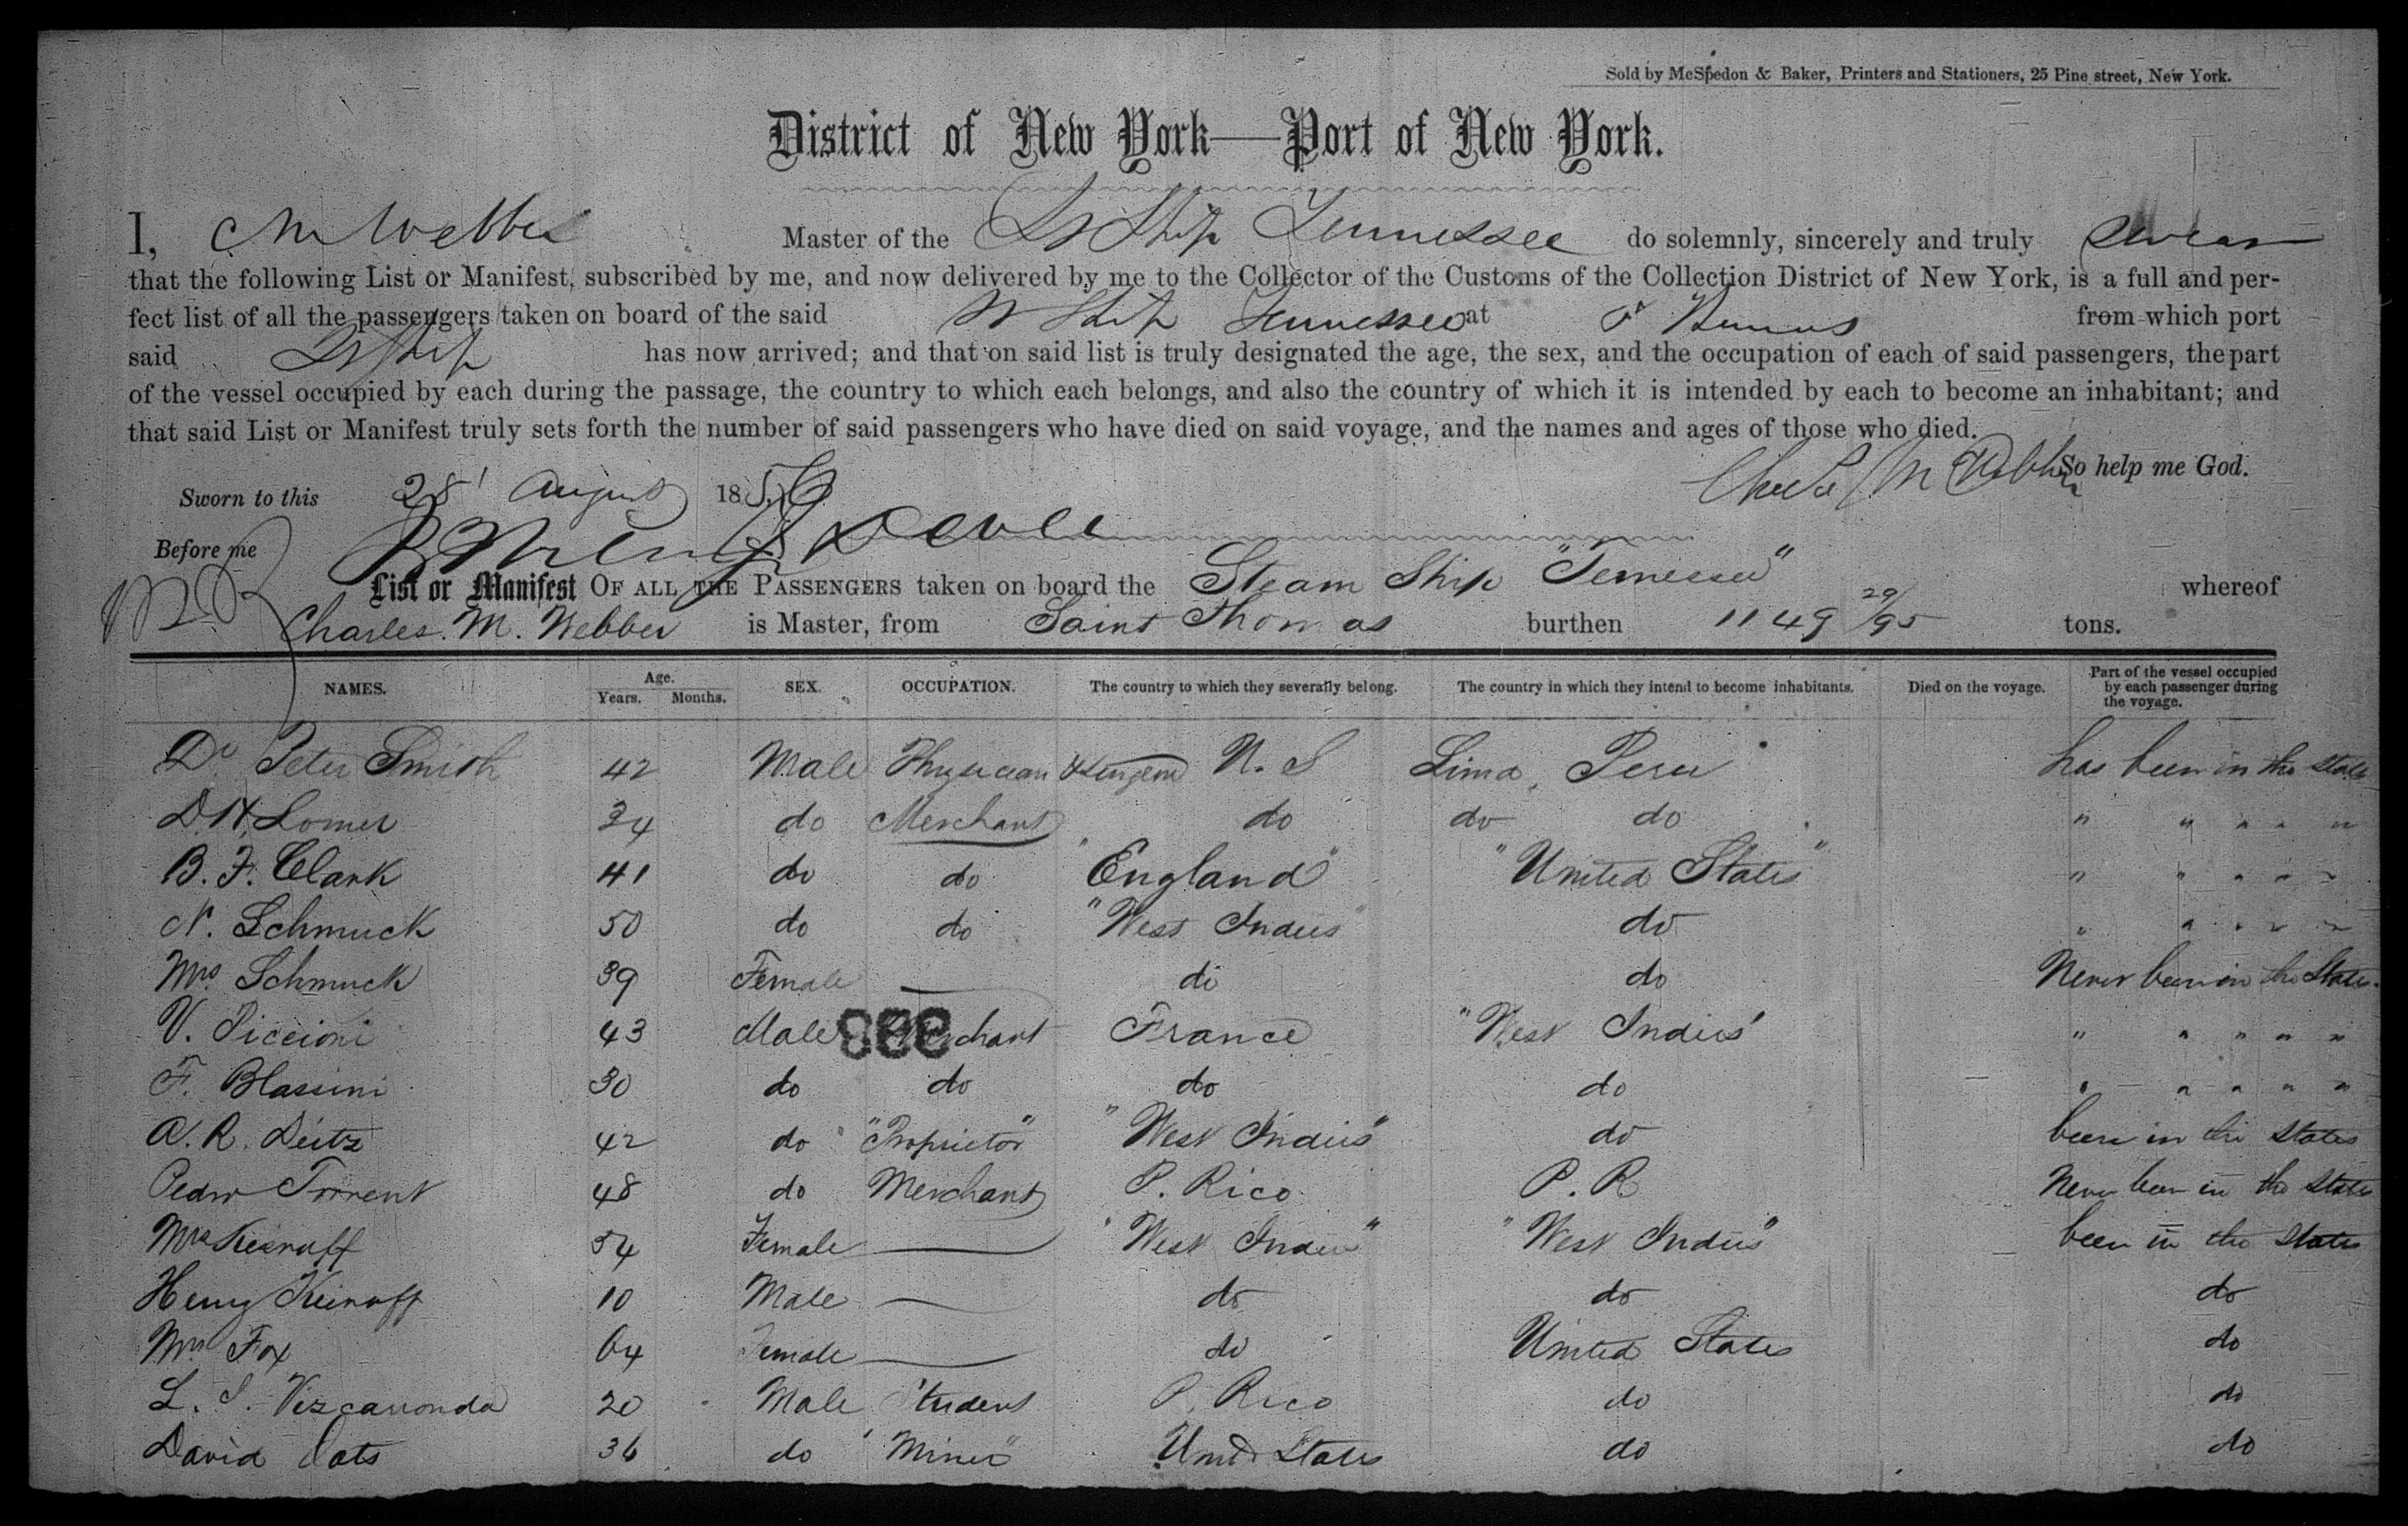 Sold by McSpedon & Baker, Printers and Stationers, 25 Pine street, New York.
District of New York—Port of New York.
I, C M Webber Master of the St Ship Tennessee do solemnly, sincerely and truly swear
that the following List or Manifest, subscribed by me, and now delivered by me to the Collector of the Customs of the Collection District of New York, is a full and per-
fect list of all the passengers taken on board of the said St Ship Tennessee at from which port
said St Ship has now arrived; and that on said list is truly designated the age, the sex, and the occupation of each of said passengers, the part
of the vessel occupied by each during the passage, the country to which each belongs, and also the country of which it is intended by each to become an inhabitant; and
that said List or Manifest truly sets forth the number of said passengers who have died on said voyage, and the names and ages of those who died.
Chas M Webber So help me God.
Sworn to this 28 August 1856
Before me
List or Manifest OF ALL THE PASSENGERS taken on board the Steam Ship "Tennessee" whereof
Charles. M. Webber is Master, from Saint Thomas burthen 1149 29/95 tons.
NAMES. Age. Years. Months. SEX. OCCUPATION. The country to which they severally belong. The country in which they intend to become inhabitants. Died on the voyage. Part of the vessel occupied by each passenger during the voyage.
Dr Peter Smith 42 Male Physician & Surgeon U. S Lima, Peru has been in the States
D. H. Lomer 34 do Merchant do do do " " " " "
B. F. Clark 41 do do "England" "United States" " " " " "
N. Schmuck 50 do do "West Indies" do " " " " "
Mrs Schmuck 39 Female — do do Never been in the States.
V. Piccioni 43 Male Merchant France "West Indies" " " " " "
888
F. Blassini 30 do do do do " " " " "
A. R. Deitz 42 do "Proprietor" "West Indies" do been in the States
Pedro Torrent 48 do Merchant P. Rico P. R Never been in the States
Mrs 54 Female — "West Indies" "West Indies" been in the States
Henry 10 Male — do do do
Mrs Fox 64 Female — do United States do
L. S. Vizcarronda 20 Male Student P. Rico do do
David Oats 36 do "Miner" United States do do